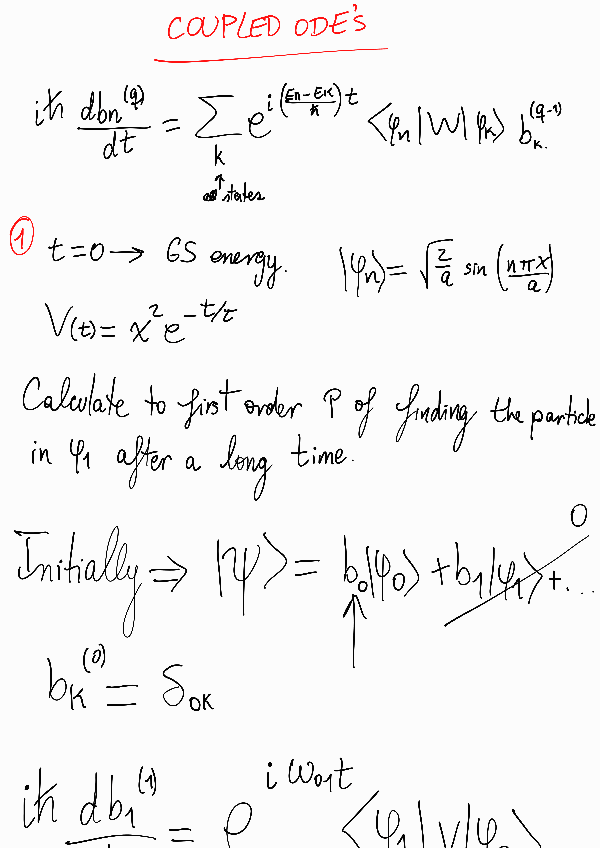 COUPLED ODE'S
iħ dbn^(q)/dt = ∑_k e^{i((En-Ek)/ħ)t} ⟨φn|W|φk⟩ b_k^(q-1)
states
① t=0 → GS energy. |φn⟩ = √(2/a) sin (nπx/a)
V(t) = x² e^{-t/τ}
Calculate to first order P of finding the particle
in φ1 after a long time.
Initially ⇒ |ψ⟩ = b0|φ0⟩ + b1|φ1⟩ + ... 0
bK^(0) = δ0K
iħ db1^(1)/dt = e^{iω01t} ⟨φ1|V|φ0⟩